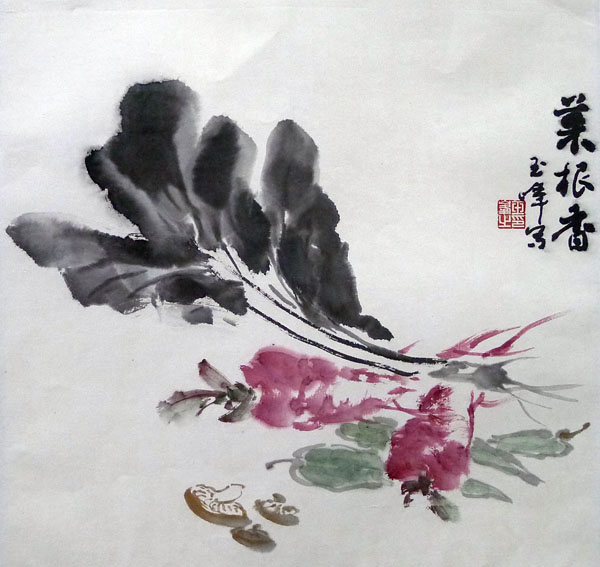 菜根香
玉峰写